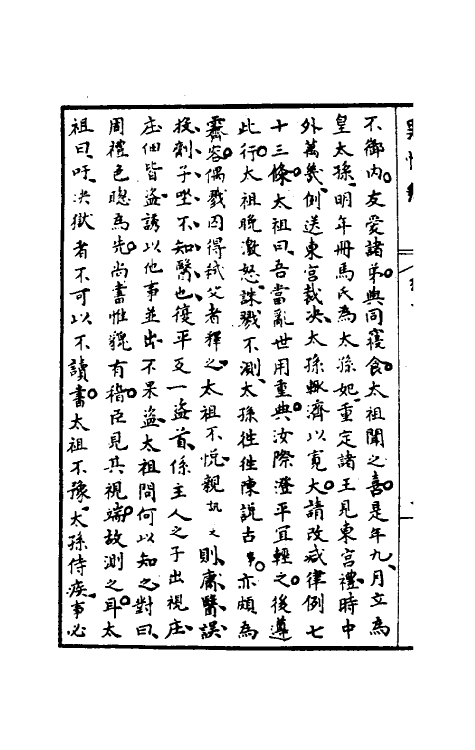 不御內友愛諸弟與同寢食太祖聞之喜是年九月立為
皇太孫明年冊馬氏為太孫妃重定諸王見東宮禮時中
外萬幾例送東宮裁决太孫輒濟以寬大請改减律例七
十三條太祖曰吾當亂世用重典汝際澄平宜輕之後遵
此行太祖晚激怒誅戮不測太孫徃徃陳說古事亦頗為
霽容偶戮囚得弒父者釋之太祖不悅親訊之則庸醫誤
投劑子坐不知醫也復平反一盗首係主人之子出視庄
庄佃皆盗誘以他事並出不果盗太祖問何以知之對曰
周禮色聰為先尚書惟貌有稽臣見其視端故測之耳太
祖曰吁决獄者不可以不讀書太祖不豫太孫侍疾事必